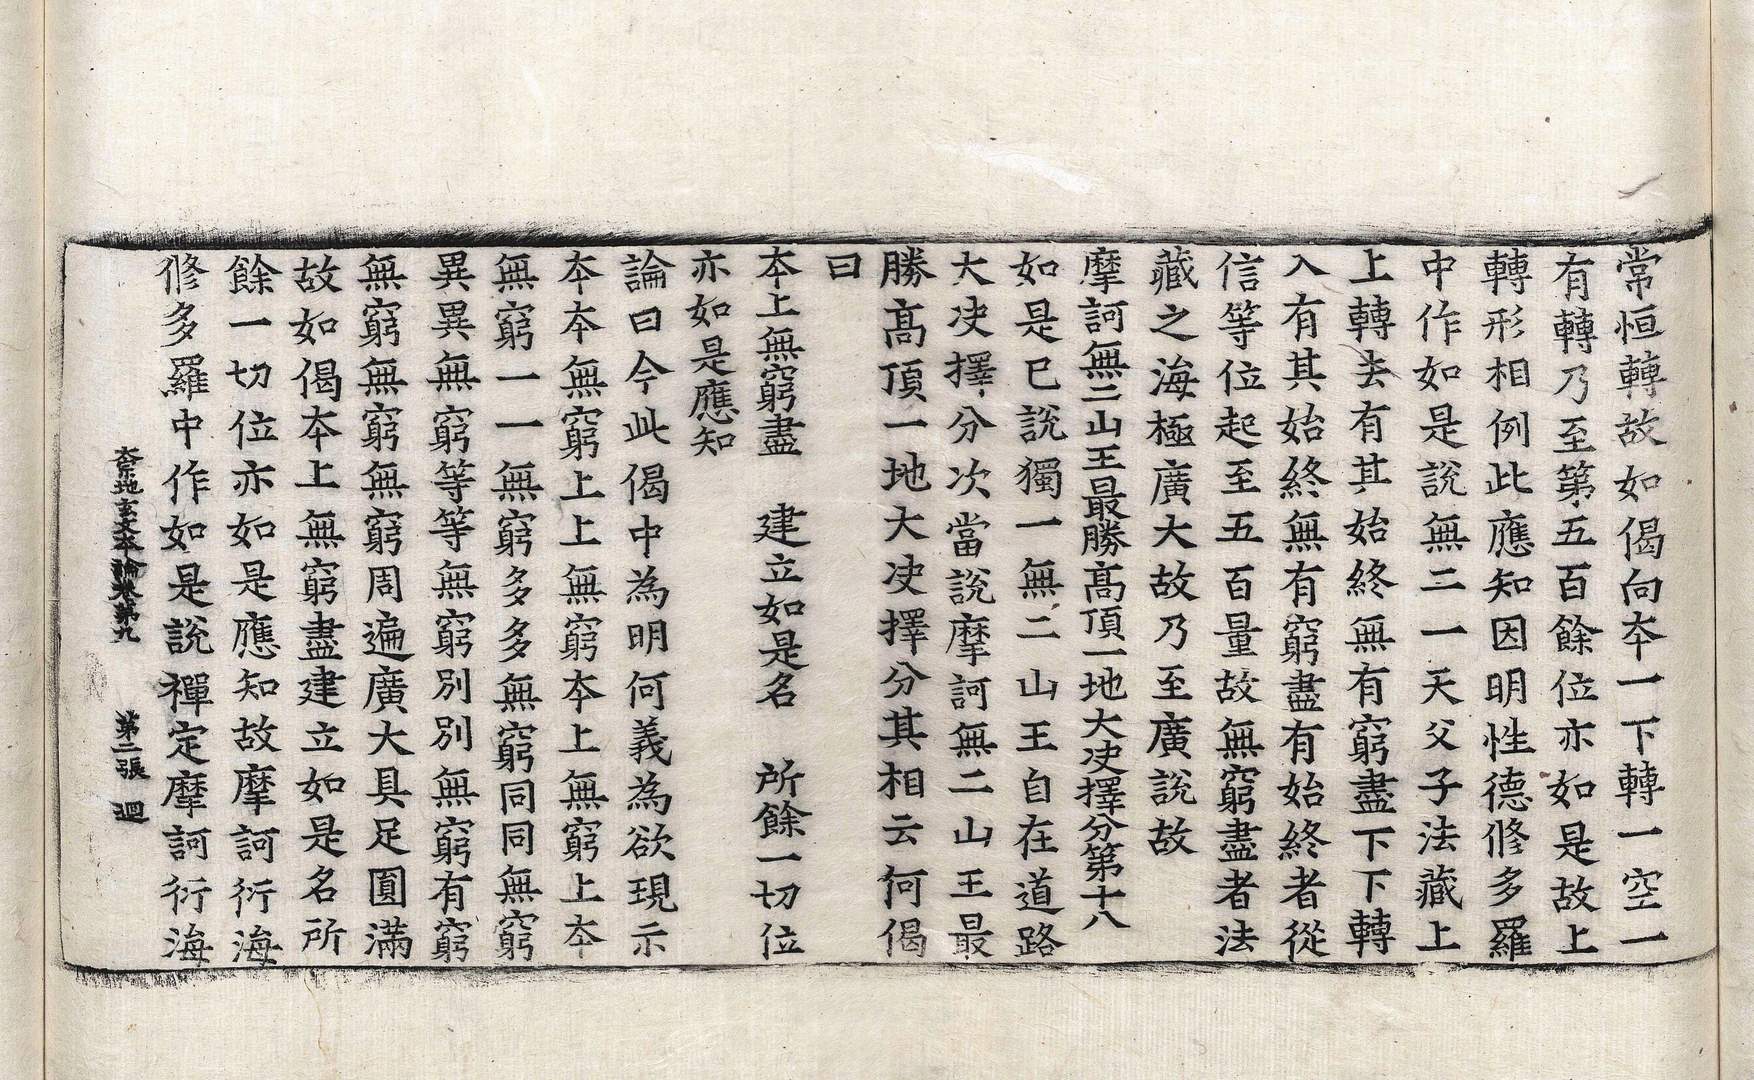 常恒轉故如偈向夲一下轉一空一
有轉乃至第五百餘位亦如是故上
轉形相例此應知因明性德修多羅
中作如是說無二一天父子法藏上
上轉去有其始終無有窮盡下下轉
入有其始終無有窮盡有始終者從
信等位起至五百量故無窮盡者法
藏之海極廣大故乃至廣說故
摩訶無二山王最勝髙頂一地大决擇分第十八
如是已說獨一無二山王自在道路
大决擇分次當說摩訶無二山王最
勝髙頂一地大决擇分其相云何偈
曰
夲上無窮盡　建立如是名　所餘一切位
亦如是應知
論曰今此偈中為明何義為欲現示
夲夲無窮上上無窮夲上無窮上夲
無窮一一無窮多多無窮同同無窮
異異無窮等等無窮別別無窮有窮
無窮無窮無窮周遍廣大具足圓滿
故如偈夲上無窮盡建立如是名所
餘一切位亦如是應知故摩訶衍海
修多羅中作如是說禪定摩訶衍海
大宗地玄文夲論卷第九　第二張　迴